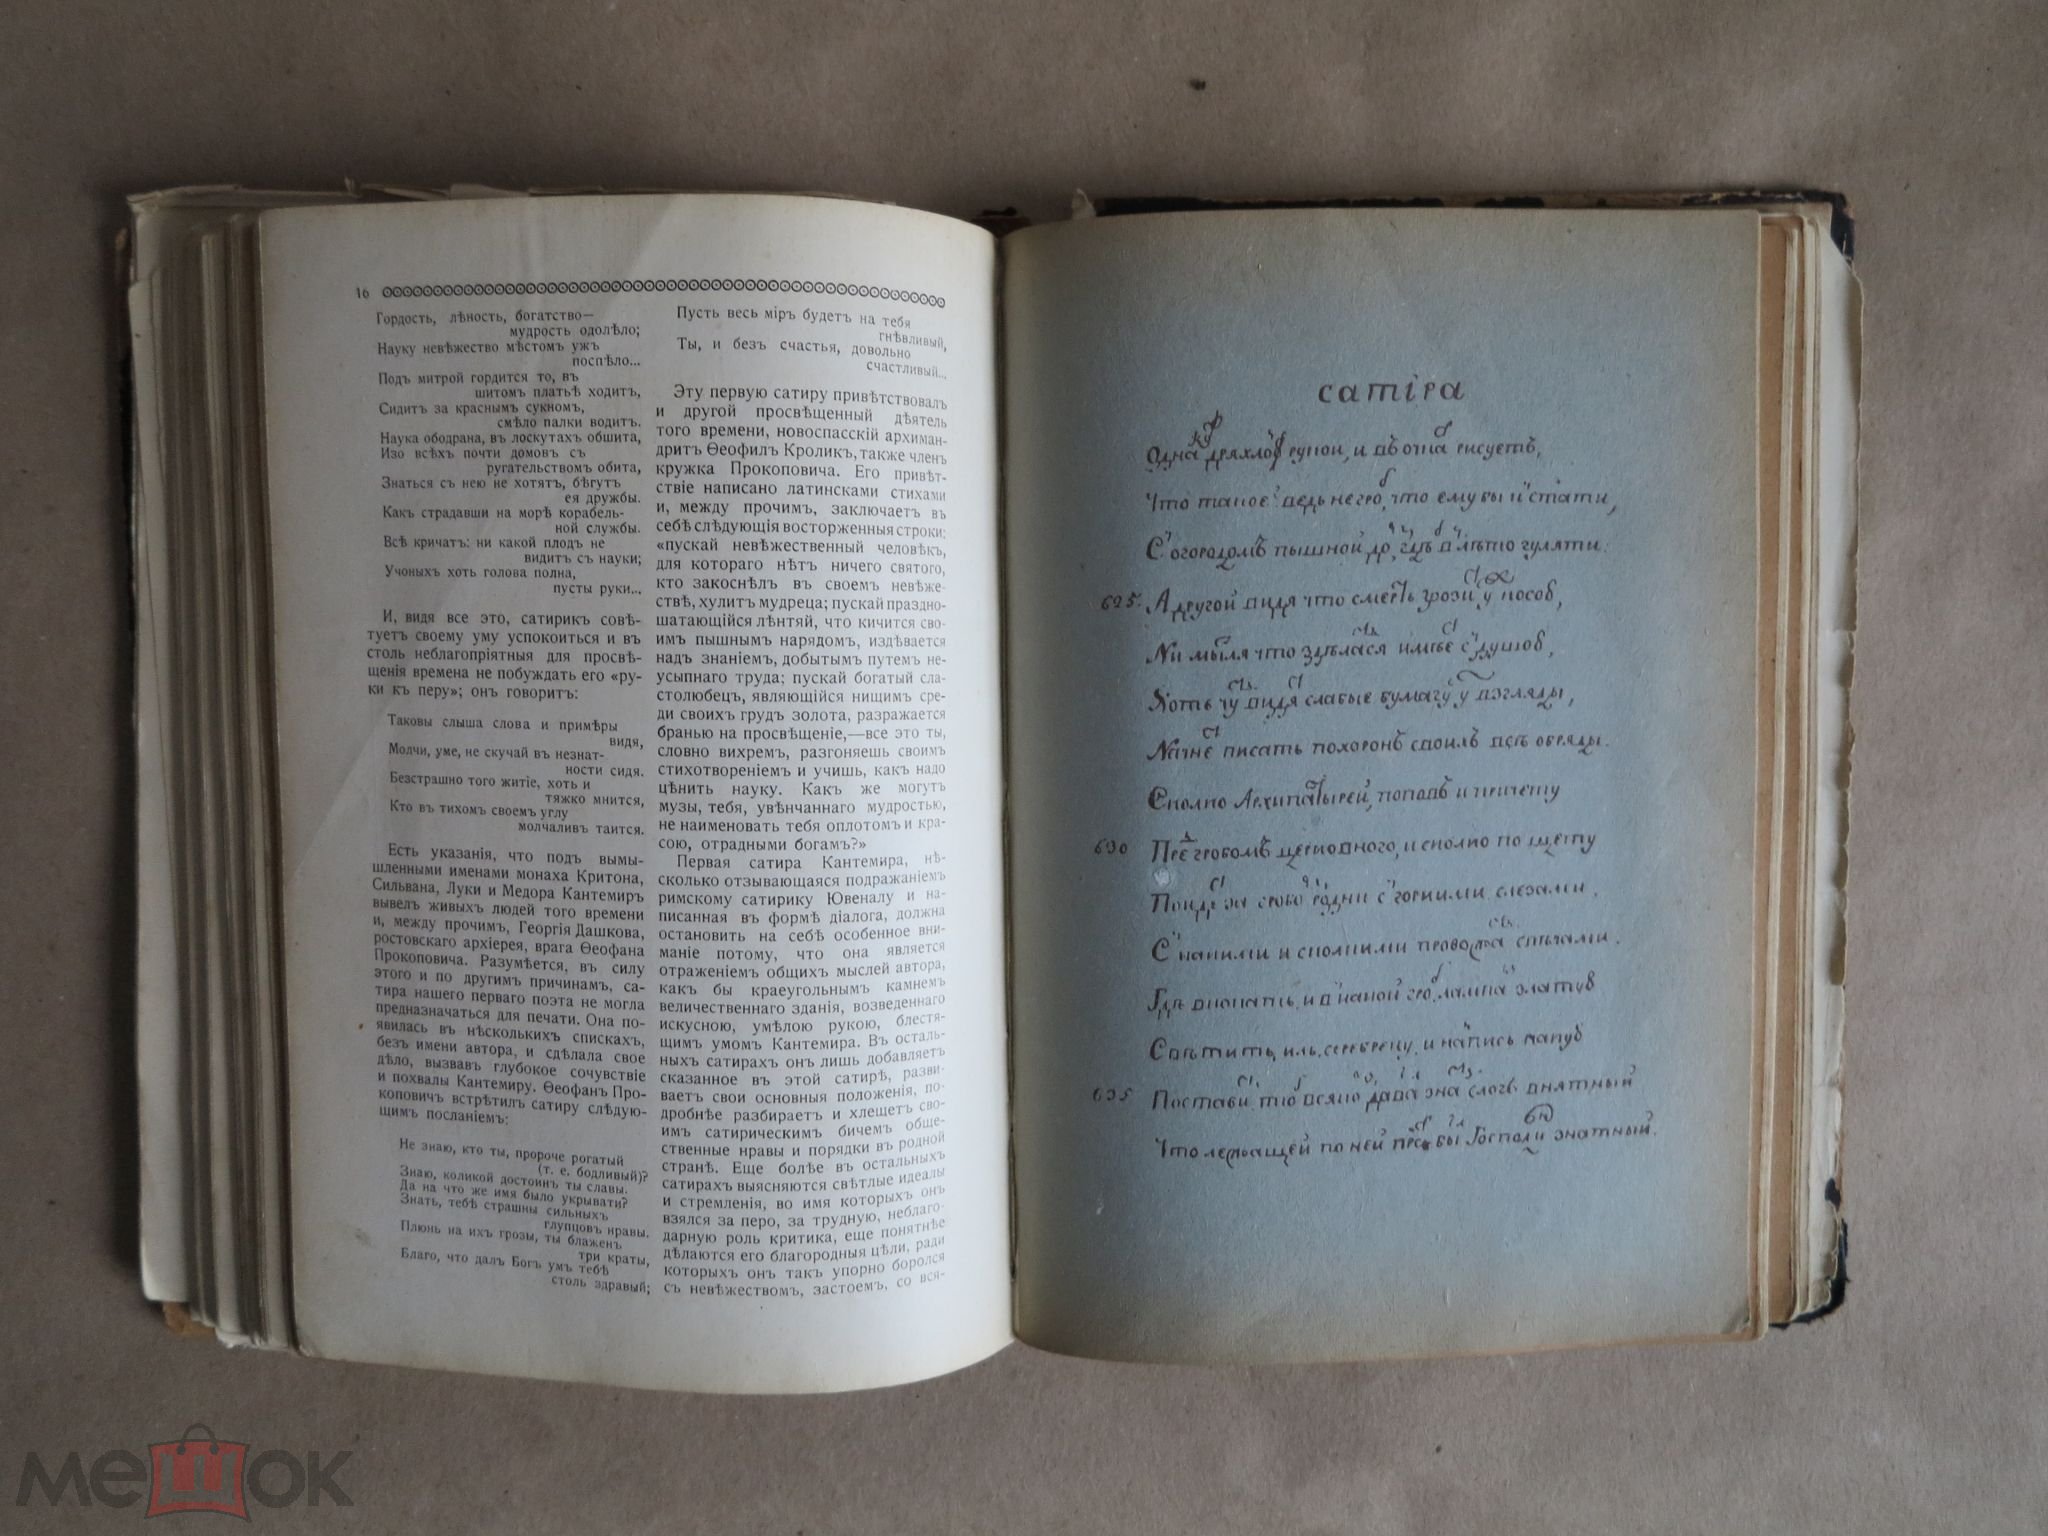 16
Гордость, лѣность, богатство—
мудрость одолѣло;
Науку невѣжество мѣстомъ ужъ
поспѣло...
Подъ митрой гордится то, въ
шитомъ платьѣ ходитъ,
Сидитъ за краснымъ сукномъ,
смѣло палки водитъ.
Наука ободрана, въ лоскутахъ обшита,
Изо всѣхъ почти домовъ съ
ругательствомъ обита,
Знаться съ нею не хотятъ, бѣгутъ
ея дружбы.
Какъ страдавши на морѣ корабель-
ной службы.
Всѣ кричатъ: ни какой плодъ не
видитъ съ науки;
Учоныхъ хоть голова полна,
пусты руки...
И, видя все это, сатирикъ совѣ-
туетъ своему уму успокоиться и въ
столь неблагопріятныя для просвѣ-
щенія времена не побуждать его «ру-
ки къ перу»; онъ говоритъ:
Таковы слыша слова и примѣры
видя,
Молчи, уме, не скучай въ незнат-
ности сидя.
Безстрашно того житіе, хоть и
тяжко мнится,
Кто въ тихомъ своемъ углу
молчаливъ таится.
Есть указанія, что подъ вымы-
шленными именами монаха Критона,
Сильвана, Луки и Медора Кантемиръ
вывелъ живыхъ людей того времени
и, между прочимъ, Георгія Дашкова,
ростовскаго архіерея, врага Ѳеофана
Прокоповича. Разумѣется, въ силу
этого и по другимъ причинамъ, са-
тира нашего перваго поэта не могла
предназначаться для печати. Она по-
явилась въ нѣсколькихъ спискахъ,
безъ имени автора, и сдѣлала свое
дѣло, вызвавъ глубокое сочувствіе
и похвалы Кантемиру. Ѳеофанъ Про-
коповичъ встрѣтилъ сатиру слѣдую-
щимъ посланіемъ:
Не знаю, кто ты, пророче рогатый
(т. е. бодливый)?
Знаю, коликой достоинъ ты славы.
Да на что же имя было укрывати?
Знать, тебѣ страшны сильныхъ
глупцовъ нравы.
Плюнь на ихъ грозы, ты блаженъ
три краты,
Благо, что далъ Богъ умъ тебѣ
столь здравый;
Пусть весь міръ будетъ на тебя
гнѣвливый,
Ты, и безъ счастья, довольно
счастливый...
Эту первую сатиру привѣтствовалъ
и другой просвѣщенный дѣятель
того времени, новоспасскій архиман-
дритъ Ѳеофилъ Кроликъ, также членъ
кружка Прокоповича. Его привѣт-
ствіе написано латинсками стихами
и, между прочимъ, заключаетъ въ
себѣ слѣдующія восторженныя строки:
«пускай невѣжественный человѣкъ,
для котораго нѣтъ ничего святого,
кто закоснѣлъ въ своемъ невѣже-
ствѣ, хулитъ мудреца; пускай праздно-
шатающійся лѣнтяй, что кичится сво-
имъ пышнымъ нарядомъ, издѣвается
надъ знаніемъ, добытымъ путемъ не-
усыпнаго труда; пускай богатый сла-
столюбецъ, являющійся нищимъ сре-
ди своихъ грудъ золота, разражается
бранью на просвѣщеніе,—все это ты,
словно вихремъ, разгоняешь своимъ
стихотвореніемъ и учишь, какъ надо
цѣнить науку. Какъ же могутъ
музы, тебя, увѣнчаннаго мудростью,
не наименовать тебя оплотомъ и кра-
сою, отрадными богамъ?»
Первая сатира Кантемира, нѣ-
сколько отзывающаяся подражаніемъ
римскому сатирику Ювеналу и на-
писанная въ формѣ діалога, должна
остановить на себѣ особенное вни-
маніе потому, что она является
отраженіемъ общихъ мыслей автора,
какъ бы краеугольнымъ камнемъ
величественнаго зданія, возведеннаго
искусною, умѣлою рукою, блестя-
щимъ умомъ Кантемира. Въ осталь-
ныхъ сатирахъ онъ лишь добавляетъ
сказанное въ этой сатирѣ, разви-
ваетъ свои основныя положенія, по-
дробнѣе разбираетъ и хлещетъ сво-
имъ сатирическимъ бичемъ обще-
ственные нравы и порядки въ родной
странѣ. Еще болѣе въ остальныхъ
сатирахъ выясняются свѣтлые идеалы
и стремленія, во имя которыхъ онъ
взялся за перо, за трудную, неблаго-
дарную роль критика, еще понятнѣе
дѣлаются его благородныя цѣли, ради
которыхъ онъ такъ упорно боролся
съ невѣжествомъ, застоемъ, со вся-
сатіра
Что такое? ведь не гроб, что ему бы и стати,
С огородомъ пышной до, гдѣ в лѣто гуляти.
625. А другой видя что смерть грози у пособ,
Хоть чу видя слабые бумагу у взгляды,
Начне писать похоронъ своилъ всѣ обряды.
Сколко Архипастырей, поповъ и причету
630 Пре гробомъ церковного, и сколко по щету
Пойде за гробо родни с горкими слезами.
С какими и сколкими провожа свѣчами.
Гдѣ вкопать, и в какой гроб, лампа златув
Свѣтить, иль серебрену, и напись какув
635 Постави что б всяко дава зна слогъ внятный
Что лежащей по ней пра бы Господи знатный.
мешок